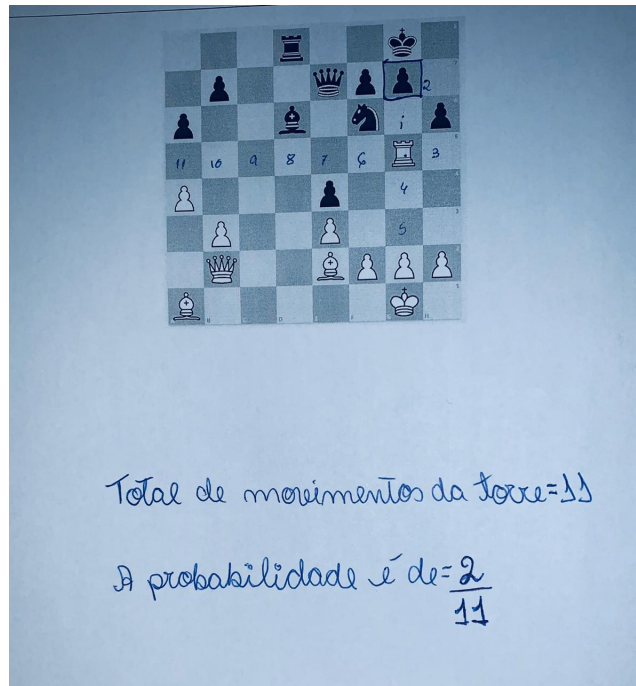 2
1
11 10 9 8 7 6 3
4
5
Total de movimentos da torre=11
A probabilidade é de=2
11